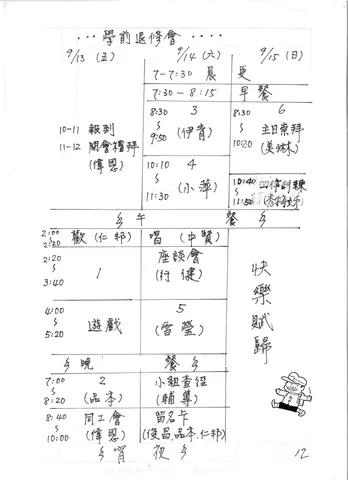 ···學前退修會····
9/13 (五) 9/14 (六) 9/15 (日)
7-7:30 晨更
7:30-8:15 早餐
8:30 3 8:30 6
10-11 報到 (伊青) 主日崇拜
9:50 10:20 (美琳)
11-12 開會禮拜
(偉恩)
10:10 4
(小萍) 10:40 四律訓練
11:30 11:50
午 餐
2:00 歡(仁邦) 唱 (中賢)
2:20 座談會 快樂賦歸
1 (行健)
3:40
4:00 5
遊戲 (雪瑩)
5:20
晚 餐
7:00 2 小組查經
8:20 (品本) (輔導)
8:40 同工會 留名卡
10:00 (偉恩) (俊昌,品本,仁邦)
宵 夜
12